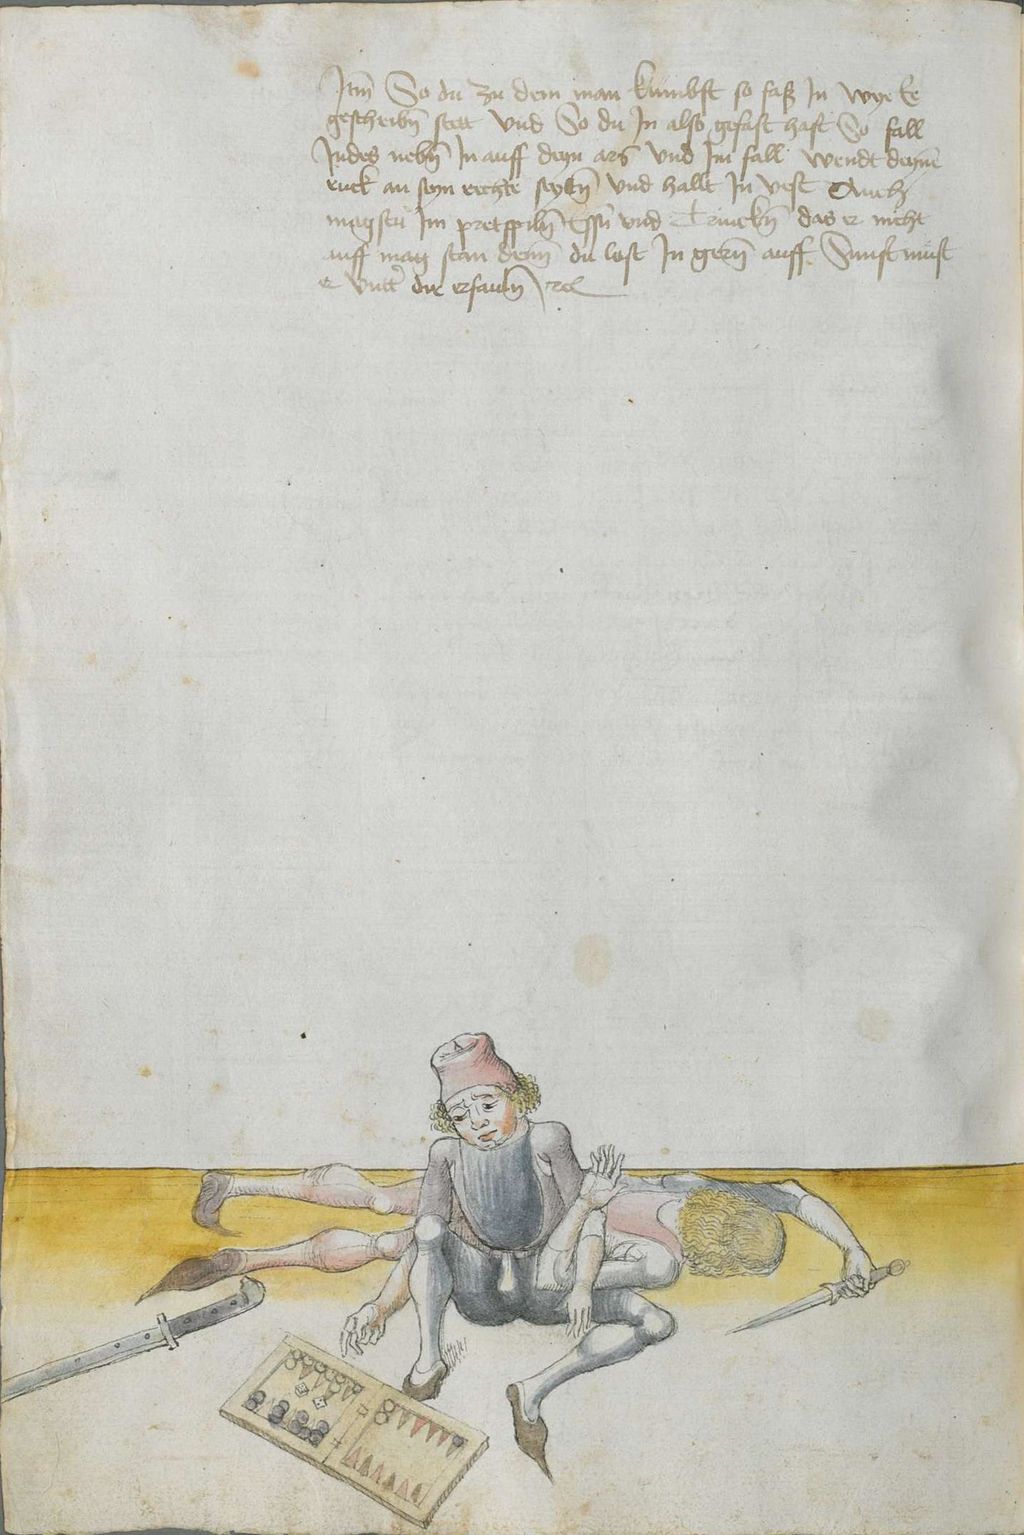 Itm̄ So du zu dem man kumbst so faß In wye Ee
geschribn̄ stett Vnd So du In also gefast hast So fall
Indes nebn̄ In auff deyn ars Vnd Im fall wendt deynē
ruck an seyn rechte seytn̄ Vnd hallt In vest Auch
magstu Im pretspiln̄ Essn̄ vnd Trinckn̄ das er nicht
auff mag stan denn̄ du lost In gern̄ auff Sunst must
er vntt̄ dir erfauln̄